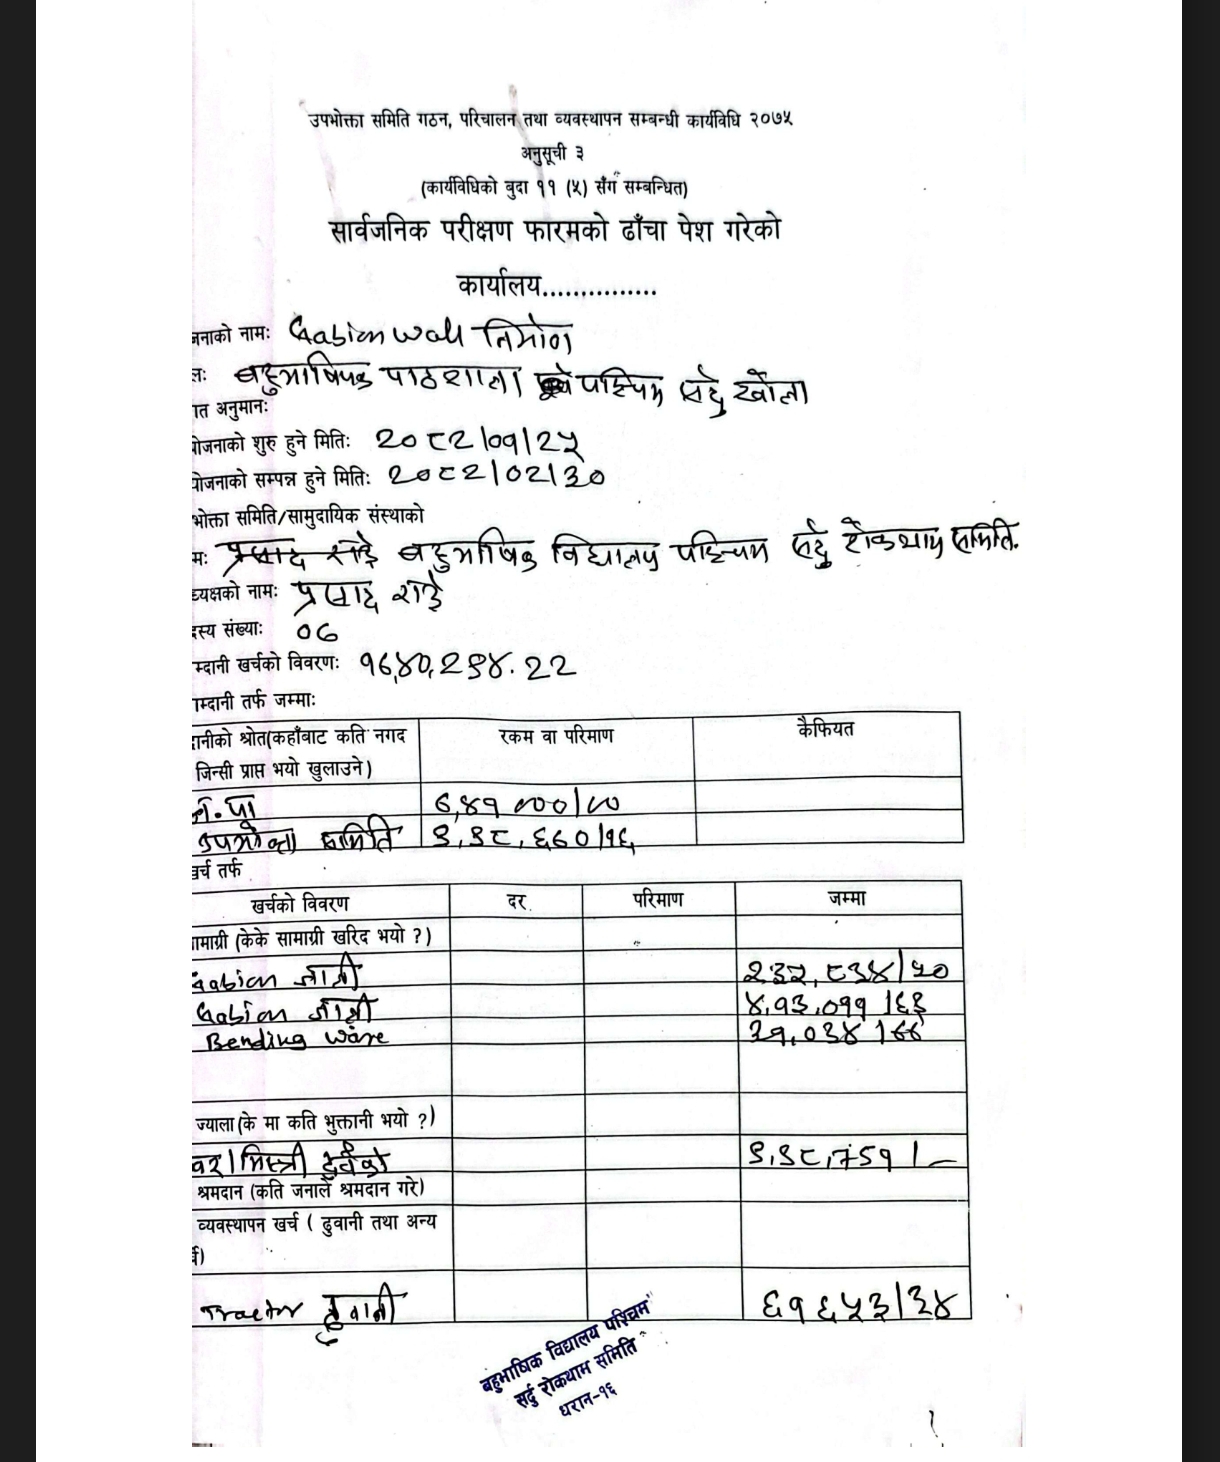 उपभोक्ता समिति गठन, परिचालन तथा व्यवस्थापन सम्बन्धी कार्यविधि २०७५
अनुसूची ३
(कार्यविधिको बुदा ११ (५) सँग सम्बन्धित)
सार्वजनिक परीक्षण फारमको ढाँचा पेश गरेको
कार्यालय...............
जनाको नामः Gabion wall निर्माण
लः बहुभाषिक पाठशाला पश्चिम सर्दु खोला
ात अनुमानः
योजनाको शुरु हुने मितिः २०८२/०१/२५
योजनाको सम्पन्न हुने मितिः २०८२/०२/३०
भोक्ता समिति/सामुदायिक संस्थाको
मः प्रसाद राई बहुभाषिक विद्यालय पश्चिम सर्दु रोकथाम समिति.
ध्यक्षको नामः प्रसाद राई
दस्य संख्याः ०७
म्दानी खर्चको विवरणः १६,४०,२९४.२२
ाम्दानी तर्फ जम्माः
दानीको श्रोत(कहाँबाट कति नगद रकम वा परिमाण कैफियत
जिन्सी प्राप्त भयो खुलाउने)
न.पा ७,४१ ०००/००
उपभोक्ता समिति ९,९८,६७०/१६
खर्च तर्फ
खर्चको विवरण दर परिमाण जम्मा
ामाग्री (केके सामाग्री खरिद भयो ?)
Gabion जाली २३२,८३४/५०
Gabion जाली ४,१३,०११/६३
Bending ware ३१,०३४/७७
ज्याला (के मा कति भुक्तानी भयो ?)
मिस्त्री दुवैको ९,९८,७५१/-
श्रमदान (कति जनाले श्रमदान गरे)
व्यवस्थापन खर्च ( ढुवानी तथा अन्य
र्च)
Tractor ढुवानी ६१६५३/३४
बहुभाषिक विद्यालय पश्चिम
सर्दु रोकथाम समिति
धरान-१६